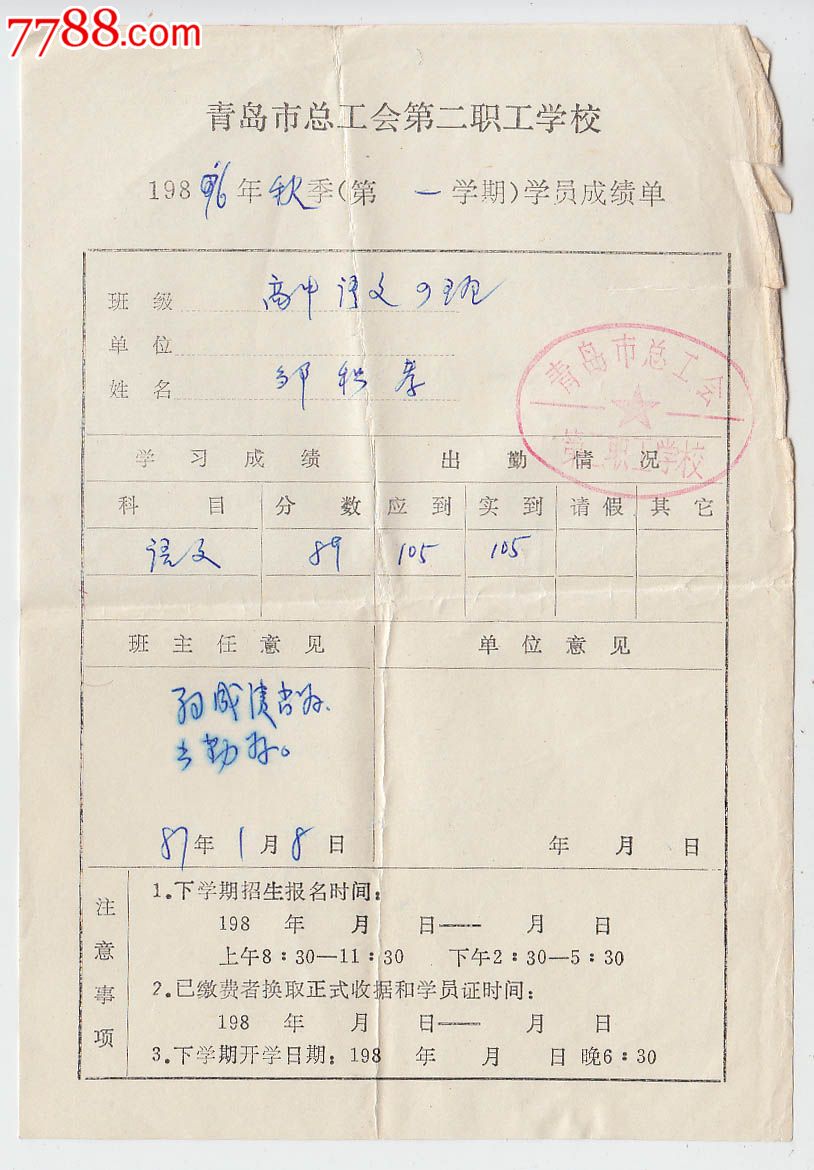 7788.com
青岛市总工会第二职工学校
1986年秋季(第一学期)学员成绩单
班级 高中语文
单位
姓名 邹积孝
青岛市总工会
第二职工学校
学习成绩 出勤情况
科目 分数 应到 实到 请假 其它
语文 89 105 105
班主任意见 单位意见
出勤好。
87年1月8日 年 月 日
注意事项
1.下学期招生报名时间:
198 年 月 日—— 月 日
上午8:30—11:30 下午2:30—5:30
2.已缴费者换取正式收据和学员证时间:
198 年 月 日—— 月 日
3.下学期开学日期:198 年 月 日 晚6:30